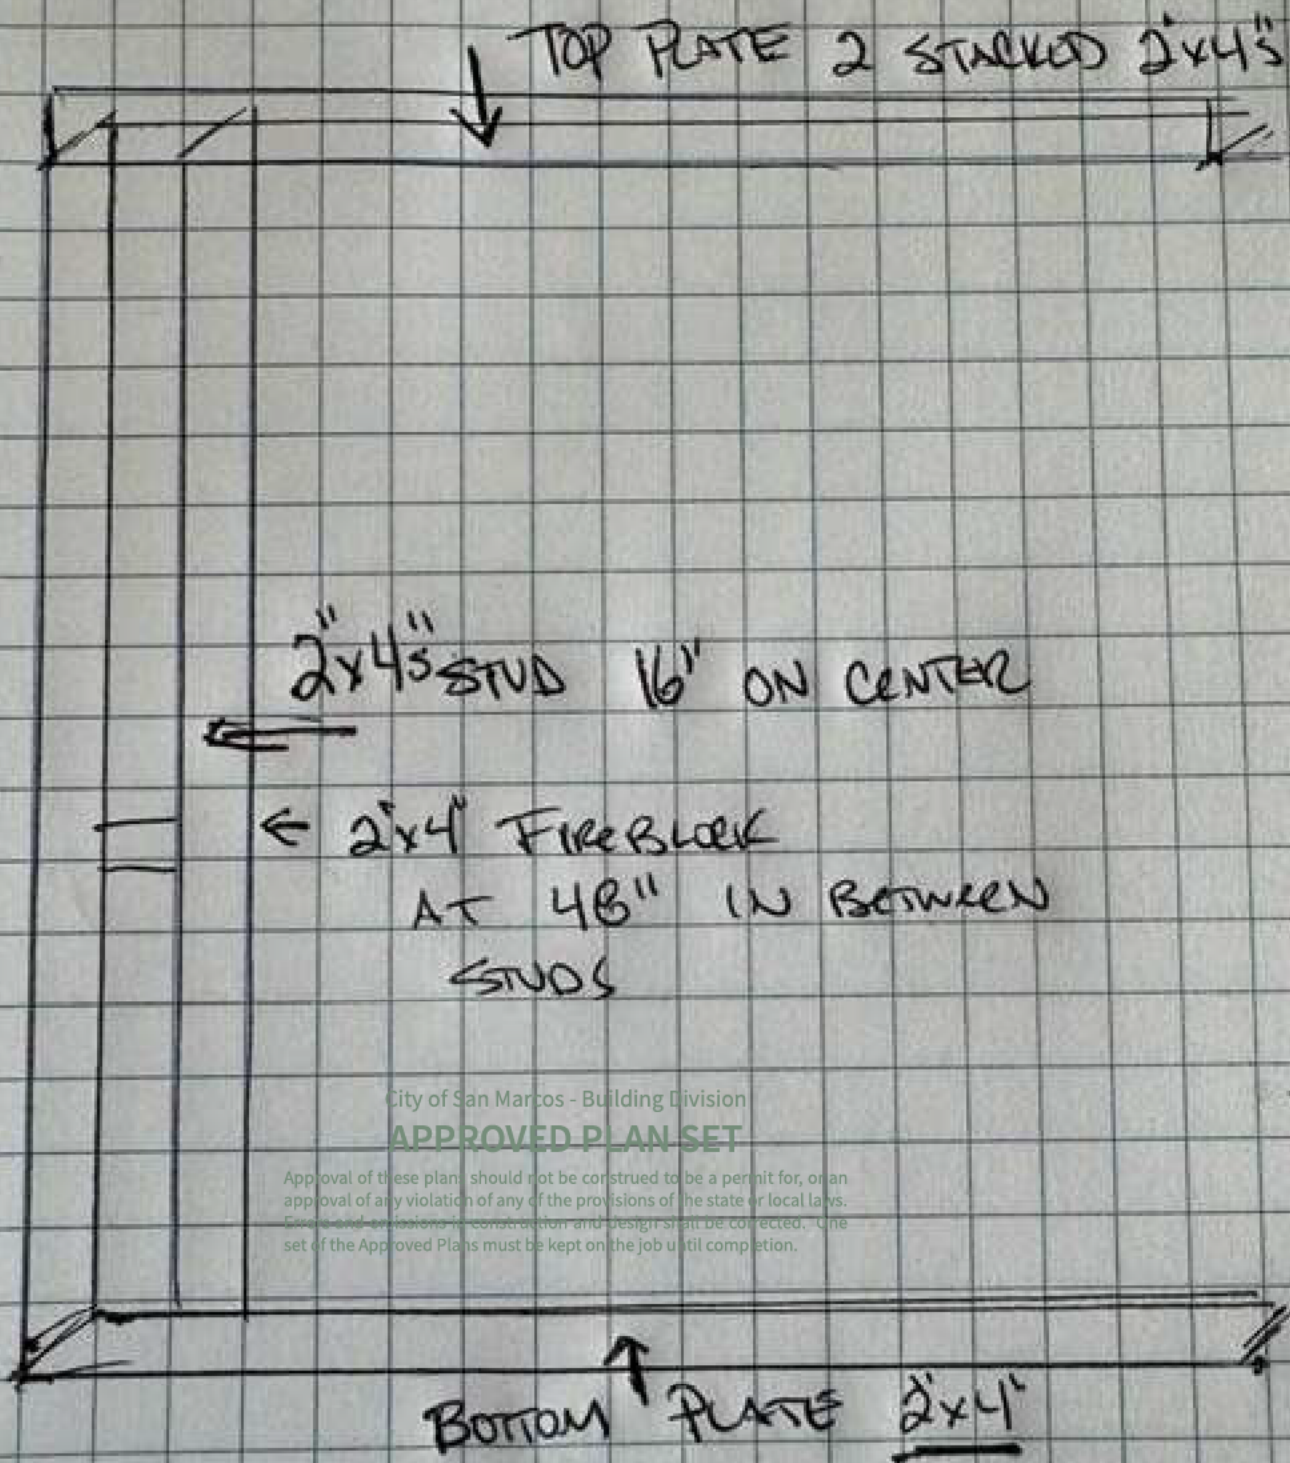 TOP PLATE 2 STACKED 2"x4's"
2"x4's" STUD 16" ON CENTER
← 2"x4" FIREBLOCK
AT 48" IN BETWEEN
STUDS
City of San Marcos - Building Division
APPROVED PLAN SET
Approval of these plans should not be construed to be a permit for, or an
approval of any violation of any of the provisions of the state or local laws.
Errors and omissions in construction and design shall be corrected. One
set of the Approved Plans must be kept on the job until completion.
BOTTOM PLATE 2"x4"